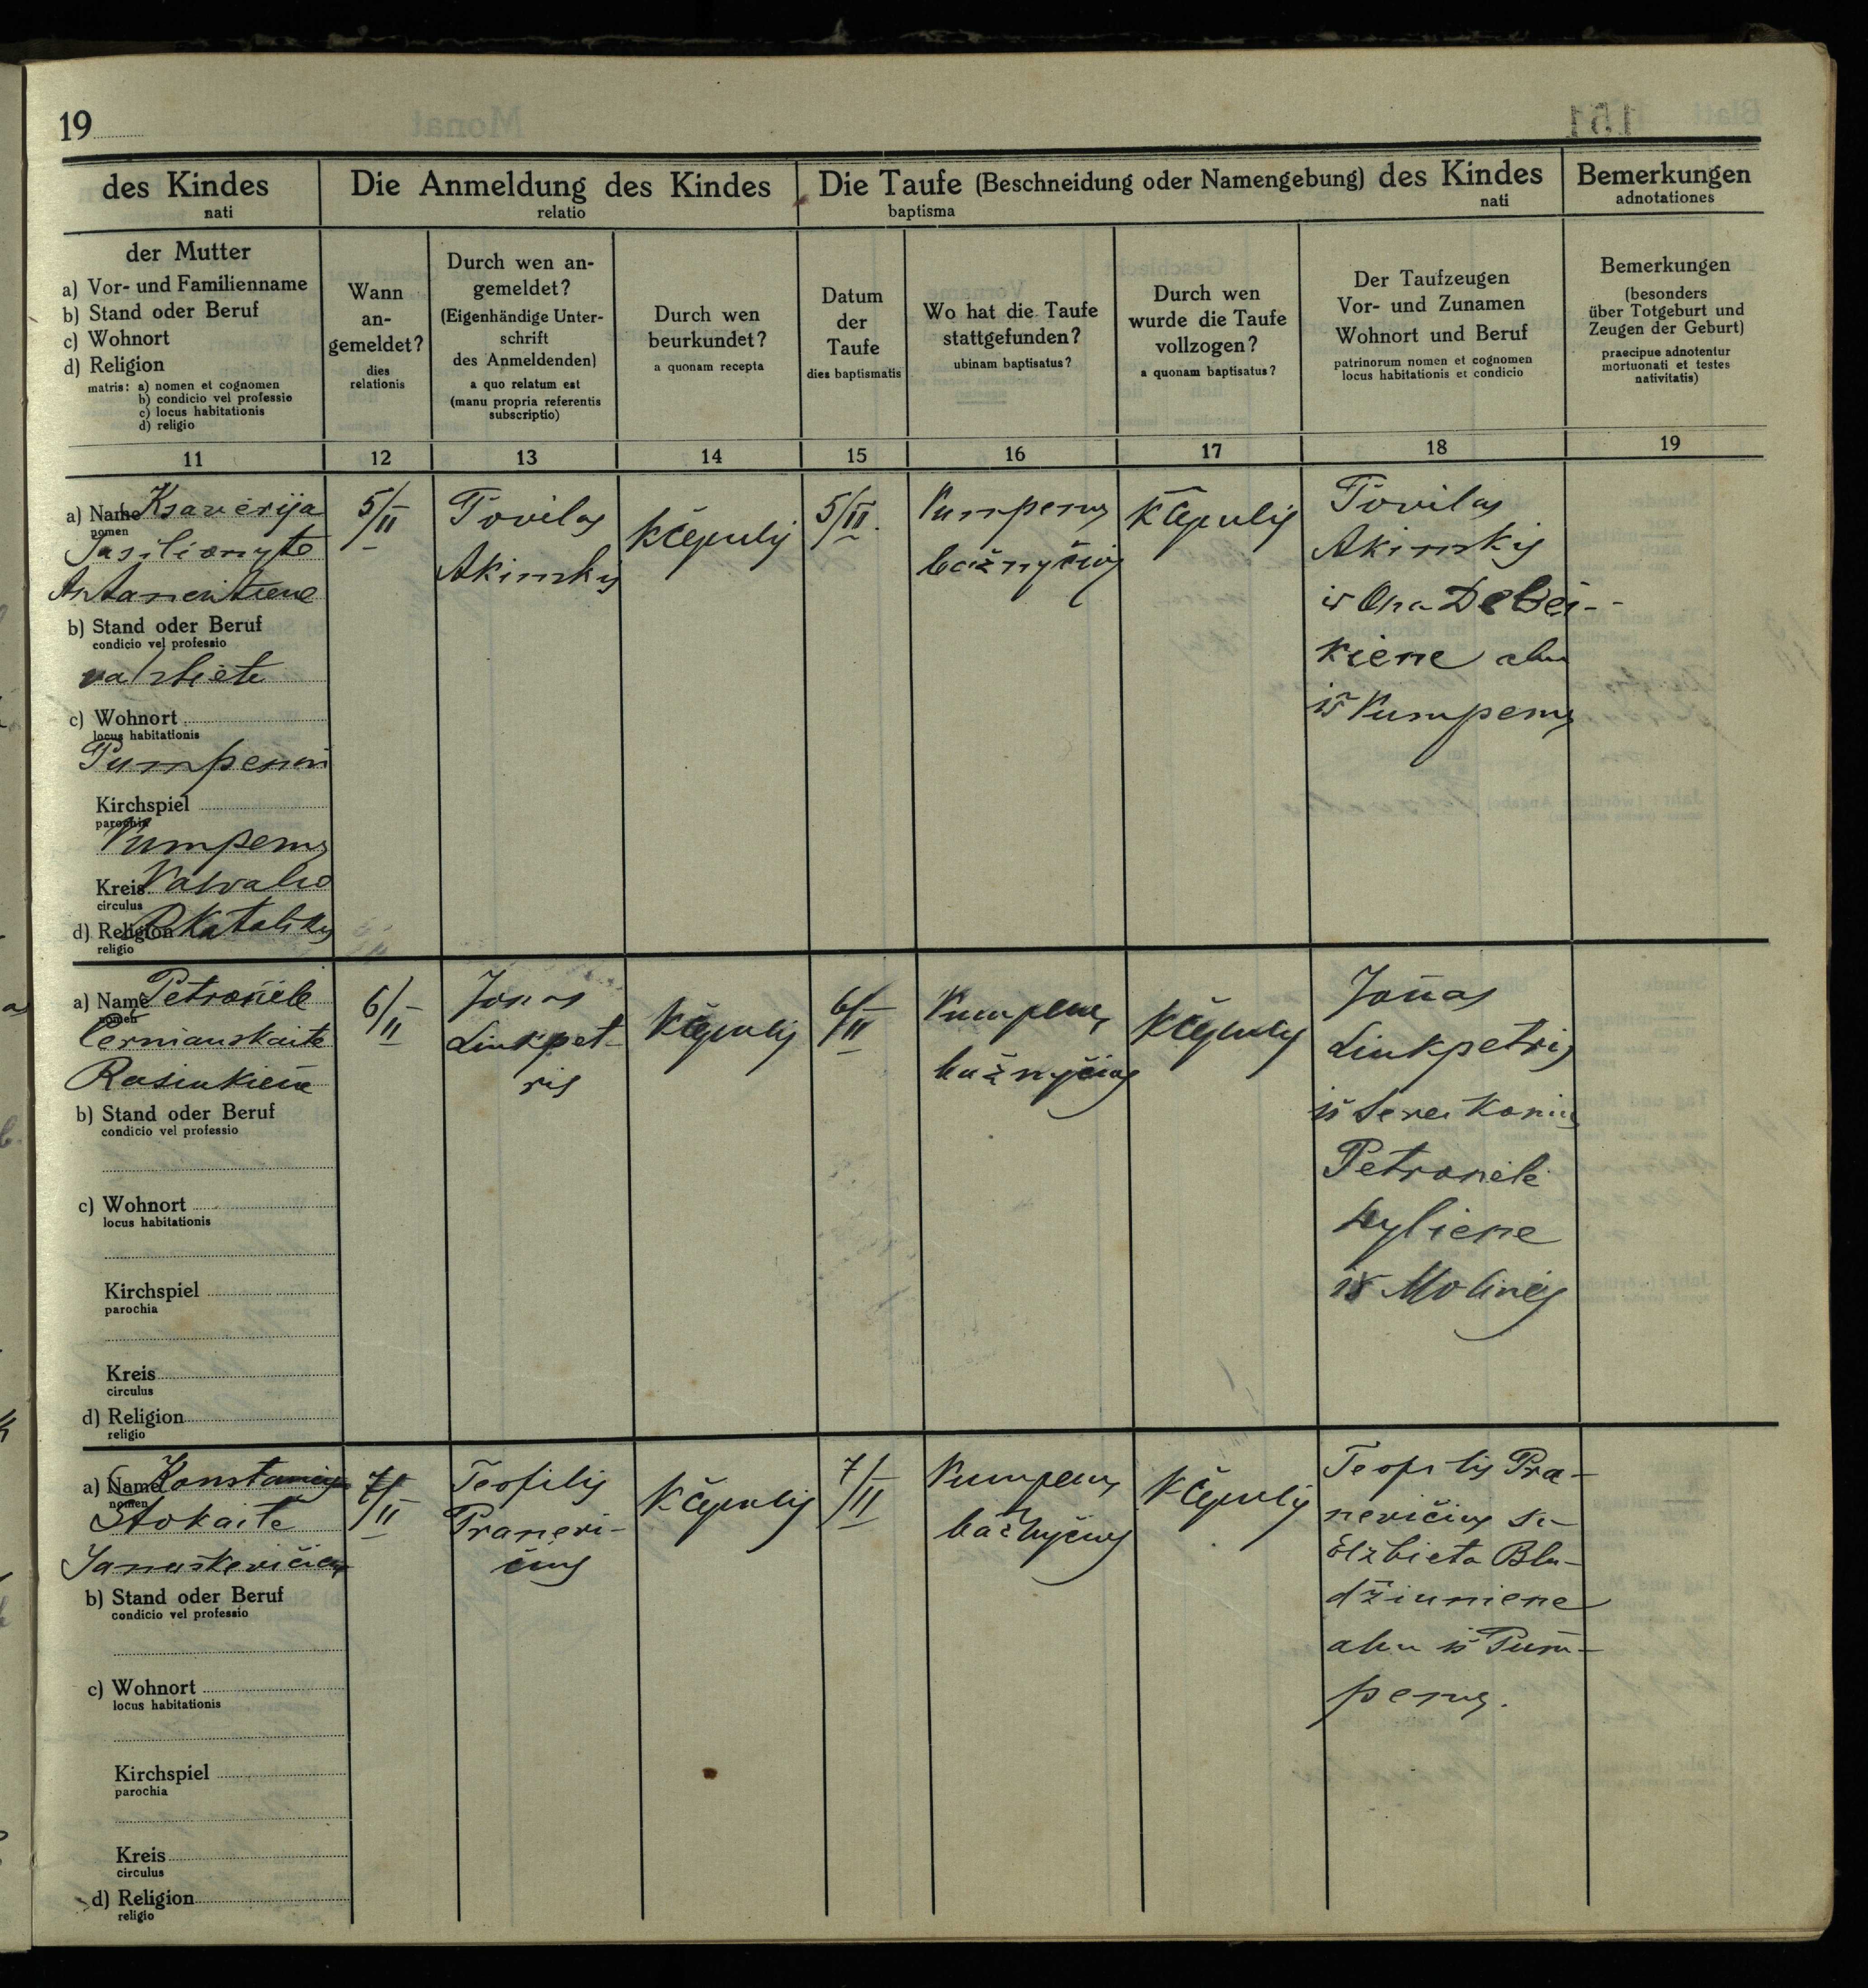 19
des Kindes
nati
Die Anmeldung des Kindes
relatio
Die Taufe (Beschneidung oder Namengebung) des Kindes
baptisma nati
Bemerkungen
adnotationes
der Mutter
a) Vor- und Familienname
b) Stand oder Beruf
c) Wohnort
d) Religion
matris: a) nomen et cognomen
b) condicio vel professio
c) locus habitationis
d) religio
Wann
an-
gemeldet?
dies
relationis
Durch wen an-
gemeldet?
(Eigenhändige Unter-
schrift
des Anmeldenden)
a quo relatum est
(manu propria referentis
subscriptio)
Durch wen
beurkundet?
a quonam recepta
Datum
der
Taufe
dies baptismatis
Wo hat die Taufe
stattgefunden?
ubinam baptisatus?
Durch wen
wurde die Taufe
vollzogen?
a quonam baptisatus?
Der Taufzeugen
Vor- und Zunamen
Wohnort und Beruf
patrinorum nomen et cognomen
locus habitationis et condicio
Bemerkungen
(besonders
über Totgeburt und
Zeugen der Geburt)
praecipue adnotentur
mortuonati et testes
nativitatis)
11 12 13 14 15 16 17 18 19
a) Name Ksaverija
nomen
b) Stand oder Beruf
condicio vel professio
c) Wohnort
locus habitationis
Kirchspiel
parochia
Pumpenų
Kreis
circulus
d) Religion R Katalikų
religio
5/II
Tovilas
Akinskis
K Čepulis
5/II.
Pumpenų
bažnyčioj
K Čepulis
Tovilas
Akinskis
ir Ona Debei-
kiene abu
iš Pumpenų
a) Name Petronėlė
nomen
Černiauskaitė
Rasiukienė
b) Stand oder Beruf
condicio vel professio
c) Wohnort
locus habitationis
Kirchspiel
parochia
Kreis
circulus
d) Religion
religio
6/II
Jonas
Linkpet-
ris
K Čepulis
6/II
Pumpenų
bažnyčioj
K Čepulis
Jonas
Linkpetris
iš
Petronėlė
iš Molinės
a) Name
nomen
Stokaitė
Janaskevičienė
b) Stand oder Beruf
condicio vel professio
c) Wohnort
locus habitationis
Kirchspiel
parochia
Kreis
circulus
d) Religion
religio
7/II
Teofilis
Pranevi-
čius
K Čepulis
7/II
Pumpenų
bažnyčioj
K Čepulis
Teofilis Pra-
nevičius su
Elzbieta Bla-
džiuniene
abu iš Pum-
penų.